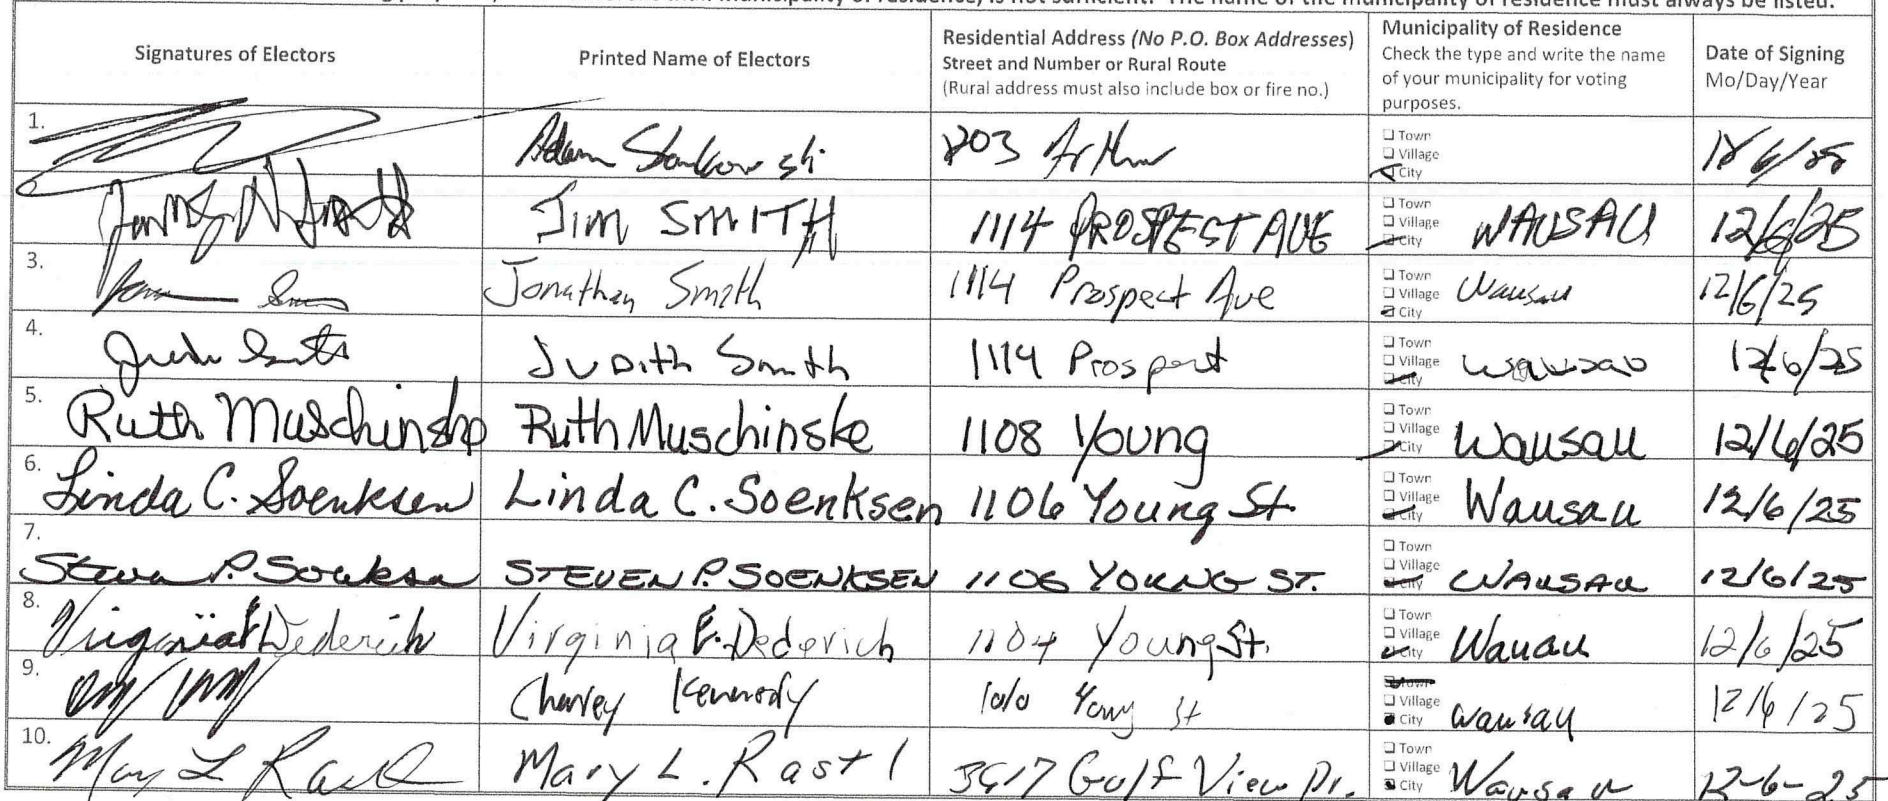 Municipality of Residence
Signatures of Electors Printed Name of Electors Residential Address (No P.O. Box Addresses) Street and Number or Rural Route (Rural address must also include box or fire no.) Check the type and write the name of your municipality for voting purposes. Date of Signing Mo/Day/Year
1. Adam Stankowski 1203 Arthur Town Village City
2. JIM SMITH 1114 PROSPEST AVE Town Village City WAUSAU 12/6/25
3. Jonathan Smith 1114 Prospect Ave Town Village City Wausau 12/6/25
4. Judith Smith 1114 Prospect Town Village City Wausau 12/6/25
5. Ruth Muschinske Ruth Muschinske 1108 Young Town Village City Wausau 12/6/25
6. Linda C. Soenksen Linda C. Soenksen 1106 Young St. Town Village City Wausau 12/6/25
7. Steven P. Soenksen STEVEN P. SOENKSEN 1106 YOUNG ST. Town Village City WAUSAU 12/6/25
8. Virginia F. Dederich Virginia F. Dederich 1104 Young St. Town Village City Wauau 12/6/25
9. Charley Kennedy 1010 Young St Town Village City Wausau 12/6/25
10. Mary L. Rastl Golf View Dr. Town Village City Wausau 12-6-25